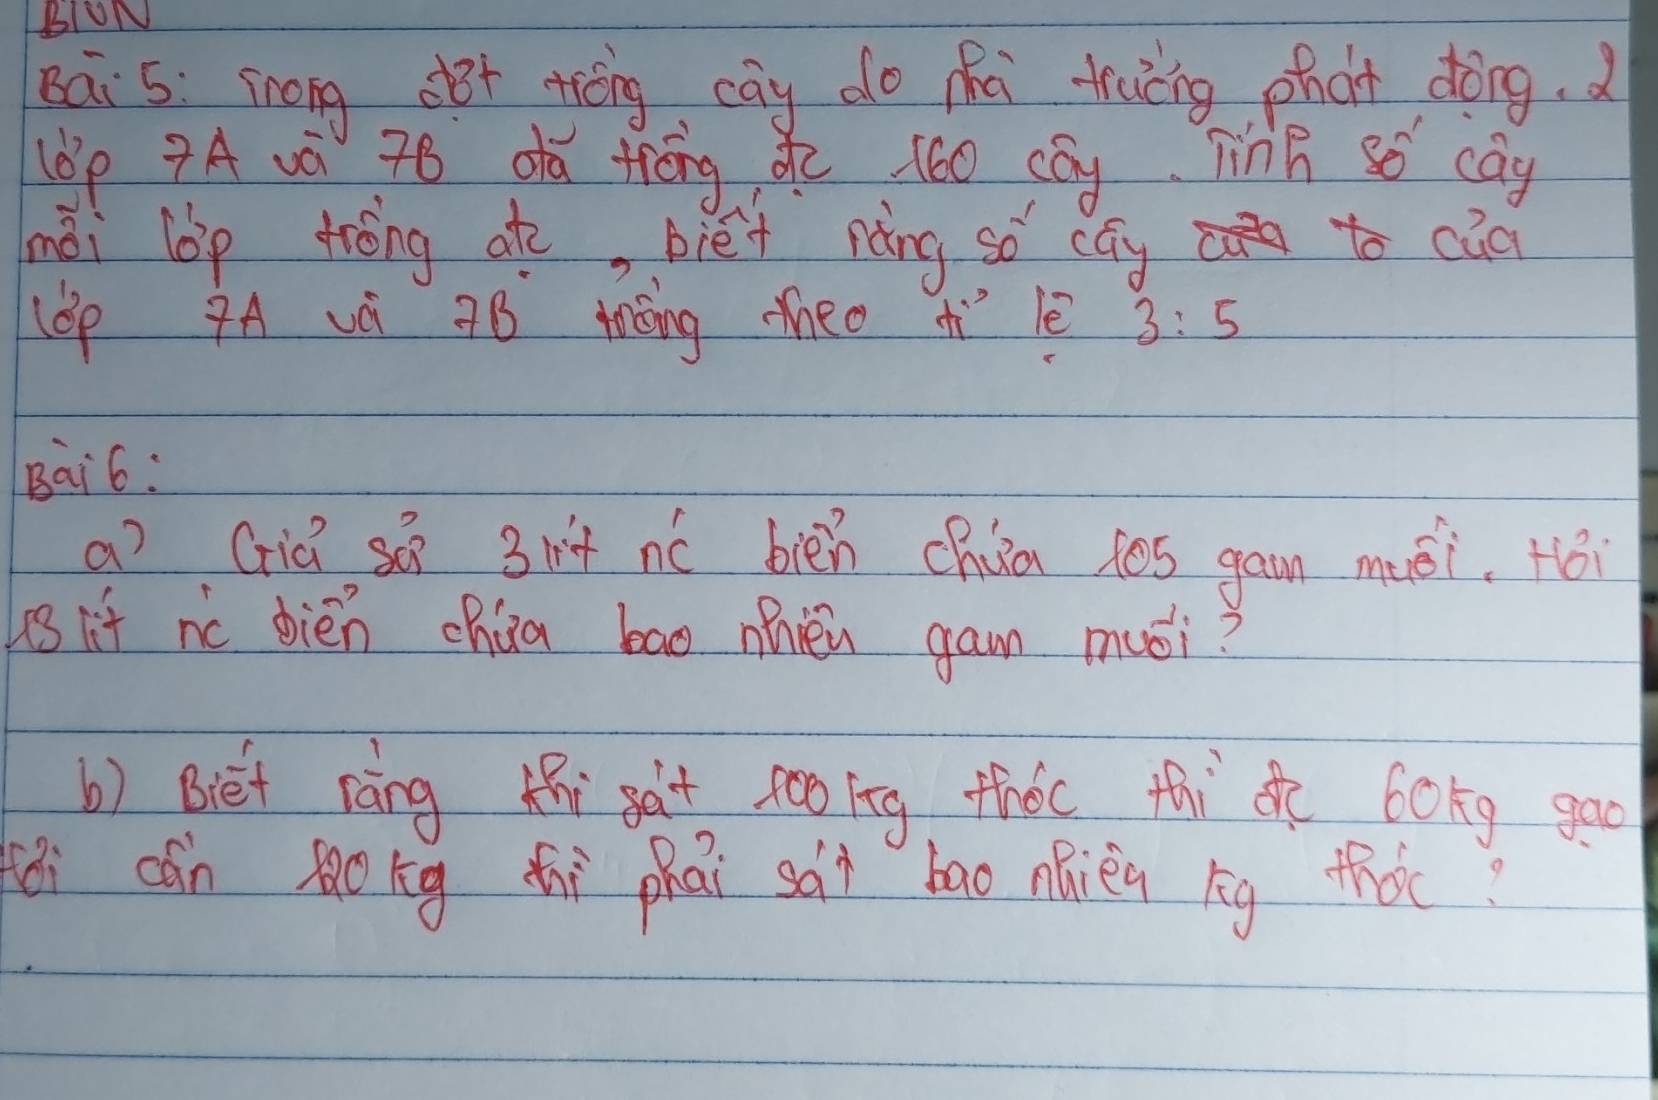 Bài 5: Trong đợt trồng cây do nhà trường phát động. 2
lớp 7A và 7B đã trồng đc 160 cây. Tính số cây
mỗi lớp trồng đc, biết rằng số cây của
lớp 7A và 7B trồng theo tỉ lệ 3:5
Bài 6:
a) Giả sử 3 lít nc biển chứa 105 gam muối. Hỏi
13 lít nc biển chứa bao nhiêu gam muối?
b) Biết rằng khi sát 100 kg thóc thì đc 60kg gạo
Hỏi cần 120 kg thì phải sát bao nhiêu kg thóc?